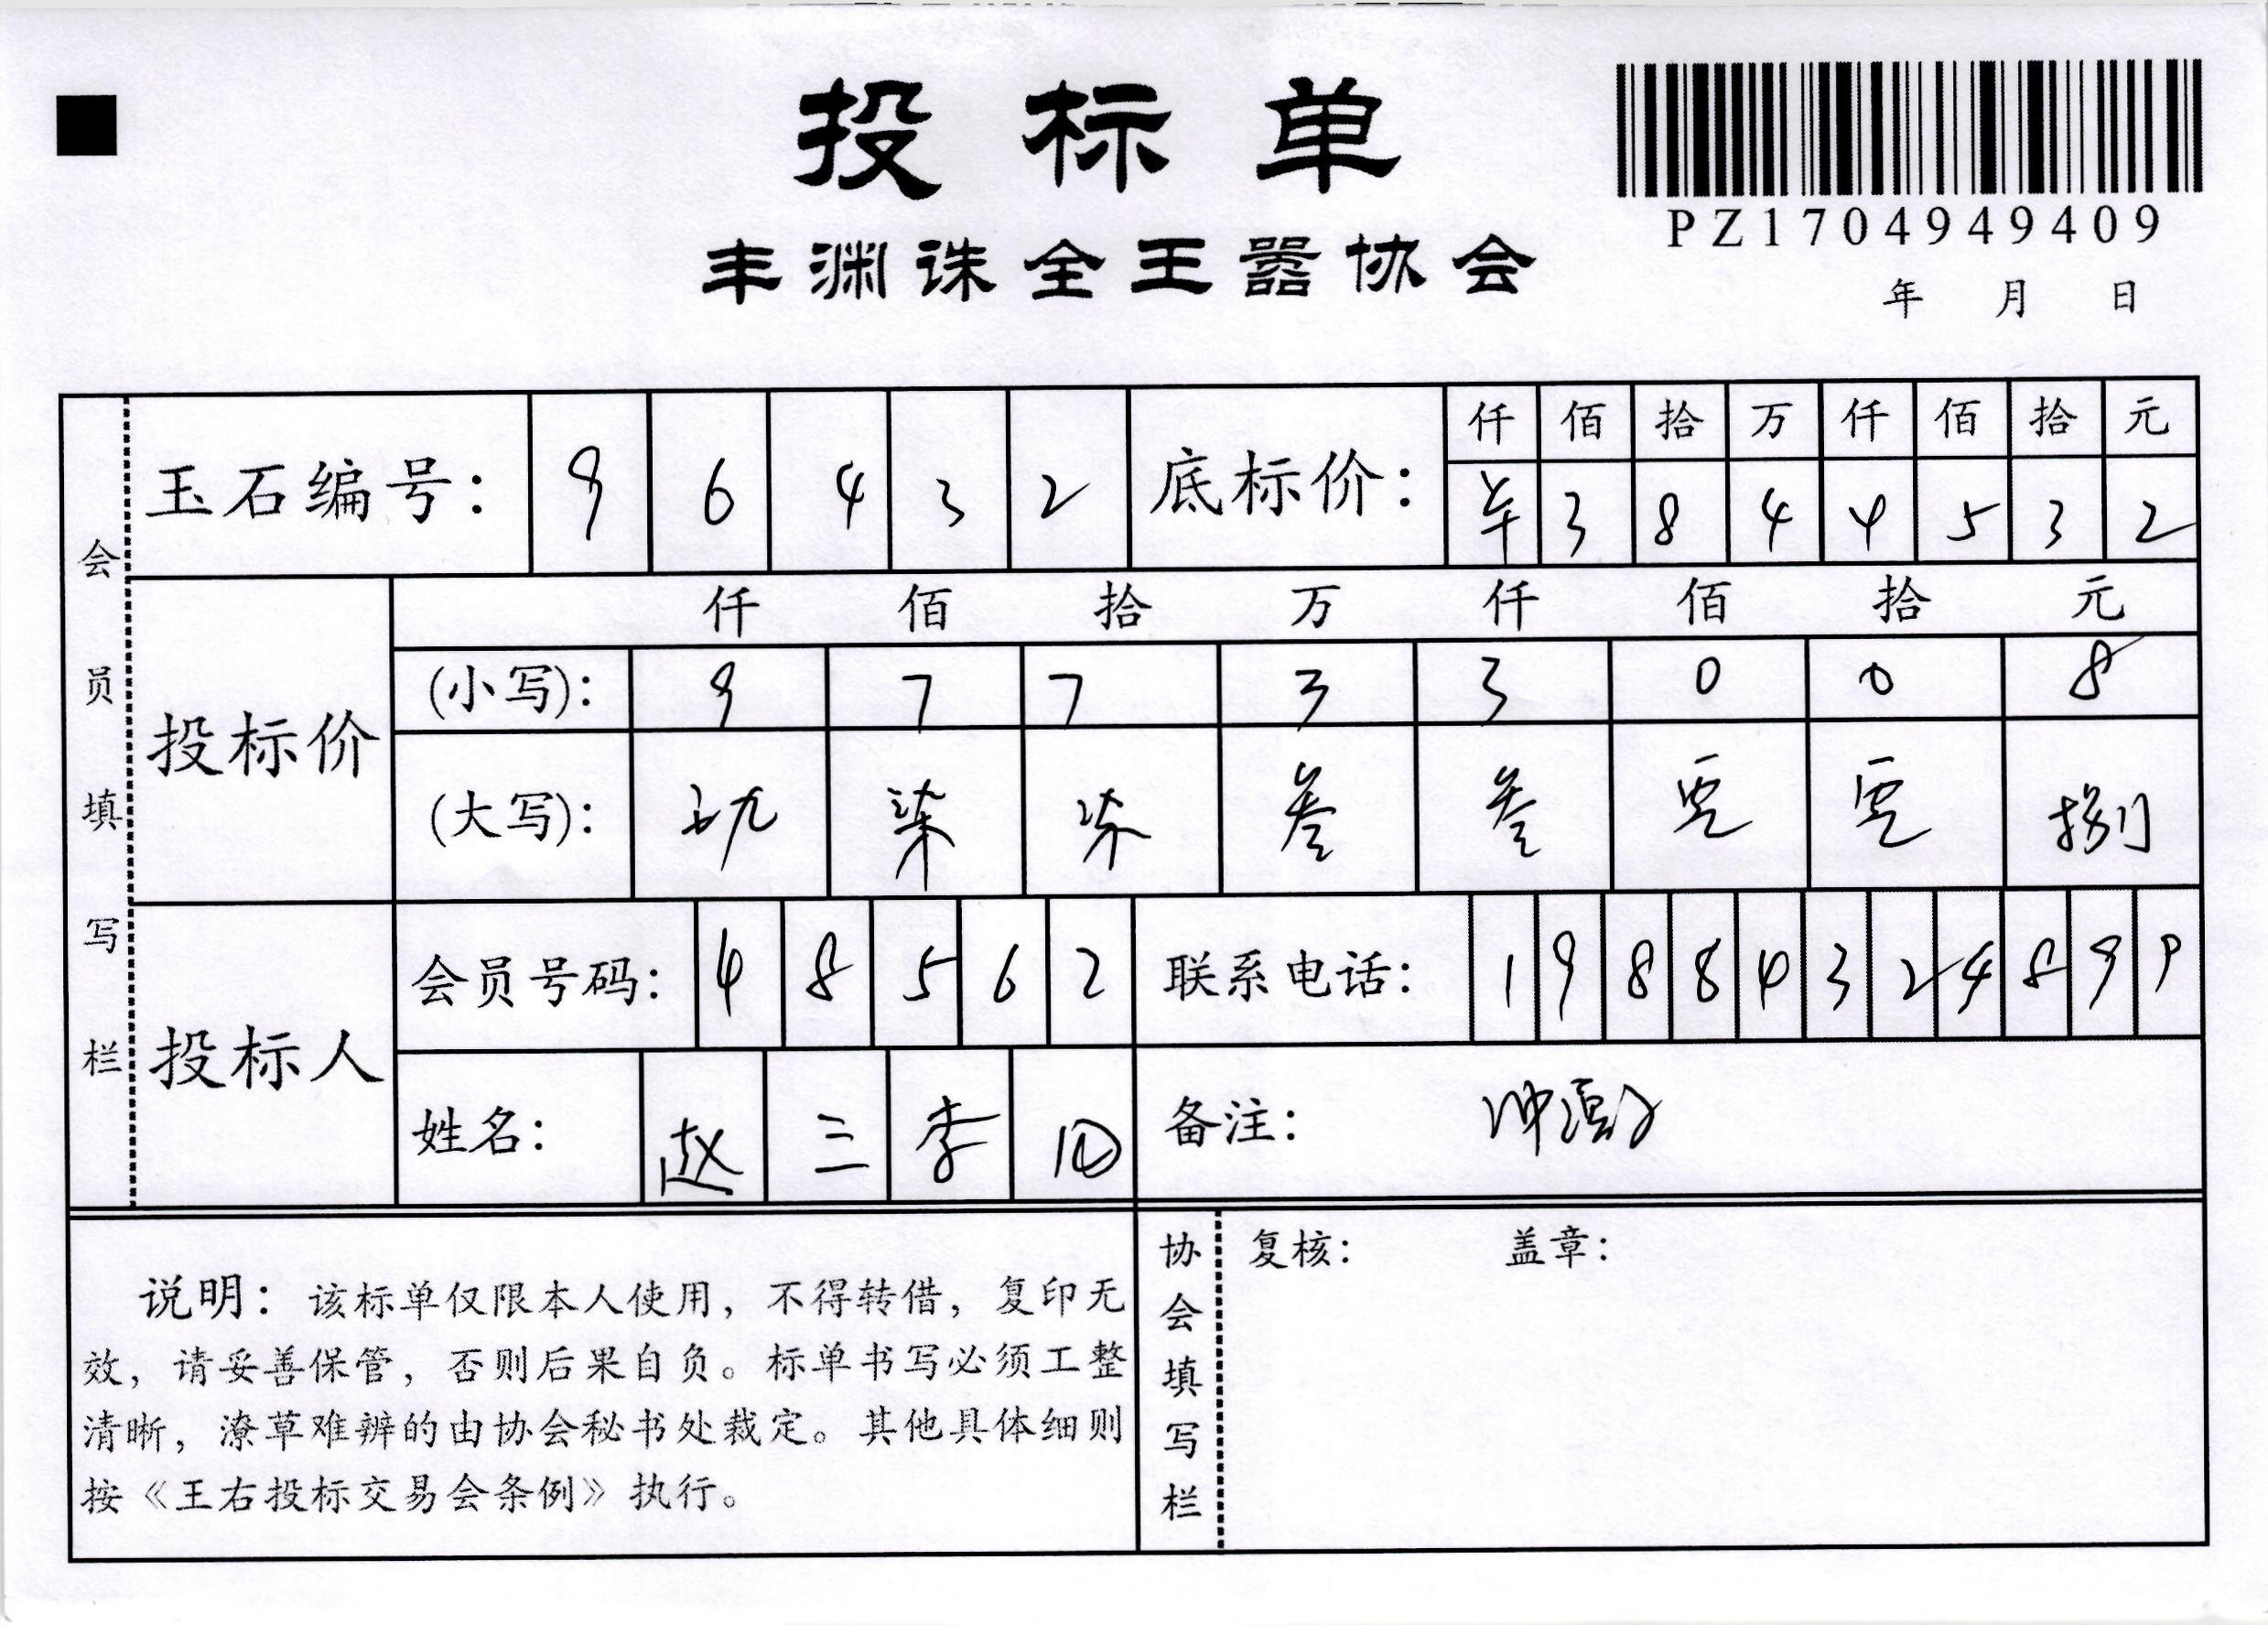 投标单
PZ1704949409
丰渊诛全王嚣协会
年 月 日
会员填写栏
玉石编号: 9 6 4 3 2
底标价: 仟 佰 拾 万 仟 佰 拾 元
¥ 3 8 4 4 5 3 2
投标价
仟 佰 拾 万 仟 佰 拾 元
(小写): 9 7 7 3 3 0 0 8
(大写): 玖 柒 柒 叁 叁 零 零 捌
投标人
会员号码: 4 8 5 6 2
联系电话: 1 9 8 8 4 3 2 4 8 9 9
姓名: 赵 三 李 四
备注:
说明: 该标单仅限本人使用, 不得转借, 复印无
效, 请妥善保管, 否则后果自负。标单书写必须工整
清晰, 潦草难辨的由协会秘书处裁定。其他具体细则
按《王右投标交易会条例》执行。
协会填写栏
复核: 盖章: